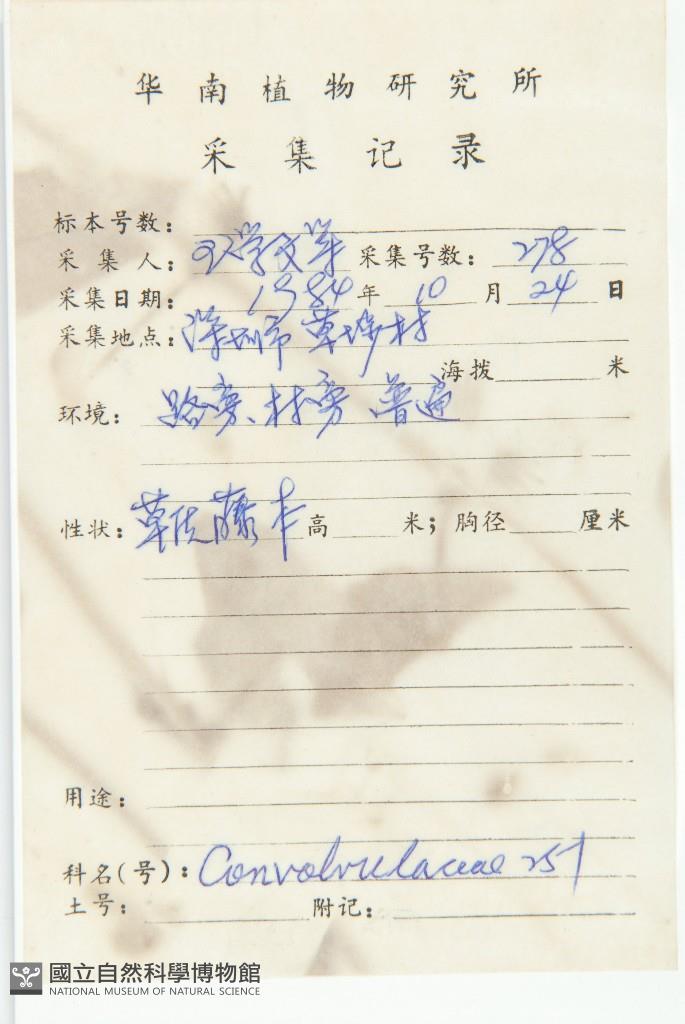 华南植物研究所
采集记录
标本号数：
采集人： 王学文等 采集号数： 278
采集日期： 1984年 10 月 24 日
采集地点： 深圳市 草埔村
海拨 米
环境： 路旁、林旁 普遍
性状： 草质藤本 高 米；胸径 厘米
用途：
科名(号)： Convolvulaceae 251
土号： 附记：
國立自然科學博物館
NATIONAL MUSEUM OF NATURAL SCIENCE